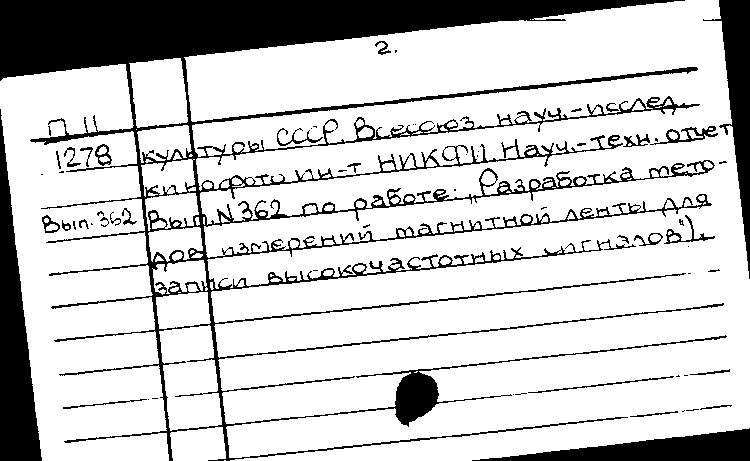 2.
П 11
1278 культуры СССР. Всесоюз. науч.-исслед.
кинофото ин-т НИКФИ. Науч.-техн. отчет
Вып. 362 Вып. N 362 по работе: „Разработка мето-
дов измерений магнитной ленты для
записи высокочастотных сигналов").